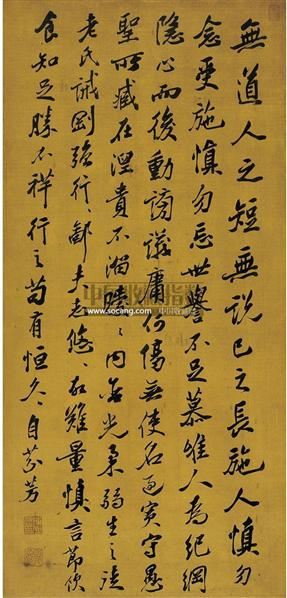 無道人之短無說己之長施人慎勿
念受施慎勿忘世譽不足慕惟人為紀綱
隱心而後動謗議庸何傷無使名過實守愚
聖所臧在涅貴不淄曖〻內含光柔弱生之徒
老氏誡剛強行〻鄙夫志悠〻故難量慎言節飲
食知足勝不祥行之苟有恒久〻自芬芳
中国收藏指数
www.socang.com